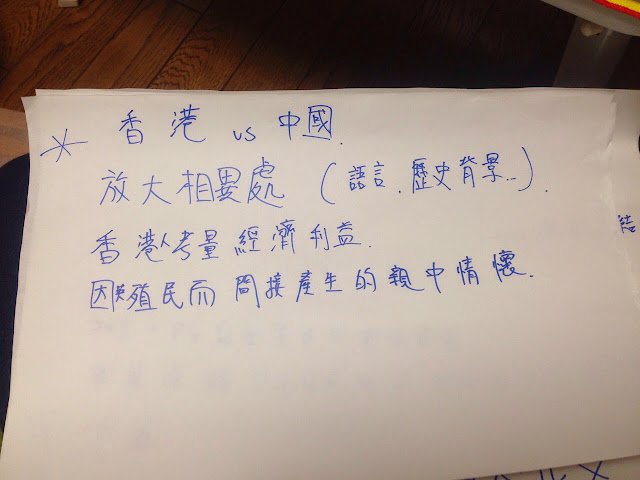 * 香港 vs 中國.
放大相異處 (語言.歷史背景...).
香港人考量經濟利益.
因英殖民而間接產生的親中情懷.
結